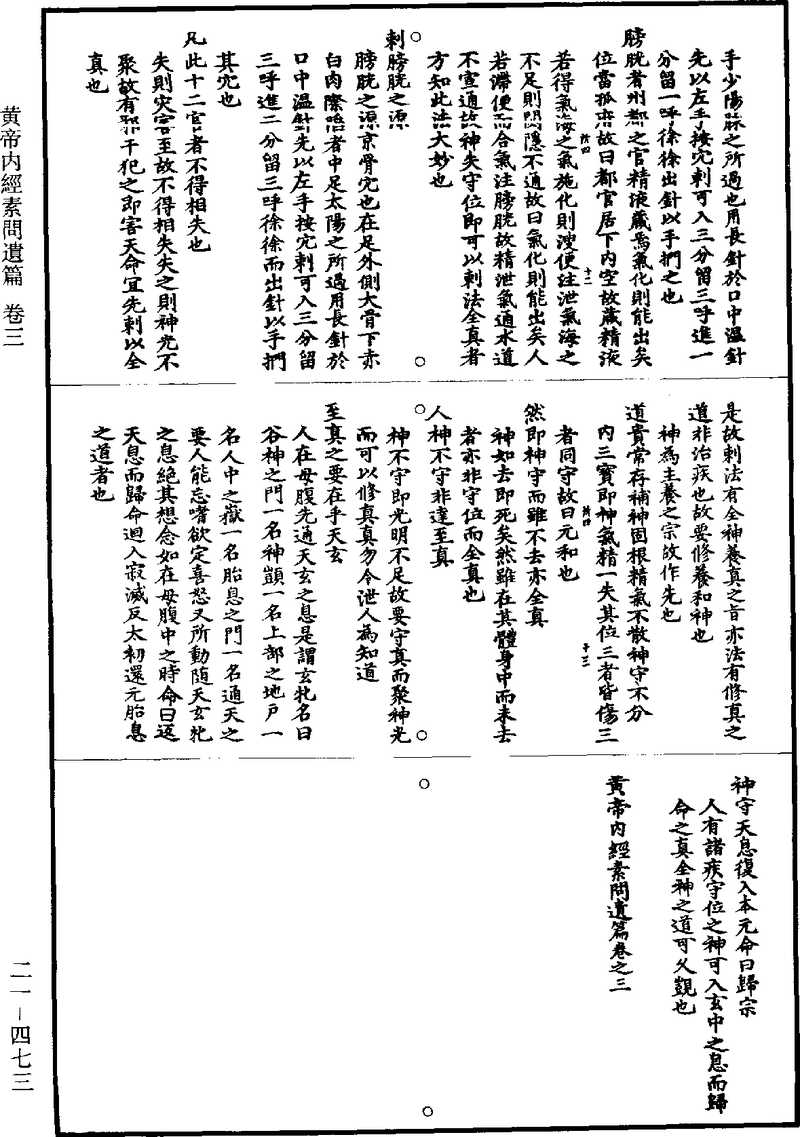 手少陽脉之所過也用長針於口中温針
先以左手按穴刺可入三分留三呼進一
分留一呼徐徐出針以手捫之也
膀胱者州都之官精液藏焉氣化則能出矣
位當孤府故曰都官居下内空故藏精液
若得氣海之氣施化則溲便注泄氣海之
不足則閟隱不通故曰氣化則能出矣人
若滯便而合氣注膀胱故精泄氣通水道
不宣通故神失守位即可以刺法全真者
方知此法大妙也
刺膀胱之源
膀胱之源京骨穴也在足外側大骨下赤
白肉際陷者中足太陽之所過用長針於
口中温針先以左手按穴刺可入三分留
三呼進二分留三呼徐徐而出針以手捫
其穴也
凡此十二官者不得相失也
失則灾害至故不得相失失之則神光不
聚故有邪干犯之即害天命宜先刺以全
真也
是故刺法有全神養真之旨亦法有修真之
道非治疾也故要修養和神也
神為主養之宗故作先也
道貴常存補神固根精氣不散神守不分
内三寳即神氣精一失其位三者皆傷三
者同守故曰元和也
然即神守而雖不去亦全真
神如去即死矣然雖在其體身中而未去
者亦非守位而全真也
人神不守非達至真
神不守即光明不足故要守真而聚神光
而可以修真真勿令泄人為知道
至真之要在乎天玄
人在母腹先通天玄之息是謂玄牝名曰
谷神之門一名神顗一名上部之地戶一
名人中之嶽一名胎息之門一名通天之
要人能忘嗜欲定喜怒又所動随天玄牝
之息絶其想念如在母腹中之時命曰返
天息而歸命迴入寂滅反太初還元胎息
之道者也
神守天息復入本元命曰歸宗
人有諸疾守位之神可入玄中之息而歸
命之真全神之道可久覬也
黄帝内經素問遺篇卷之三
黄帝内經素問遺篇 卷三
二一－四七三